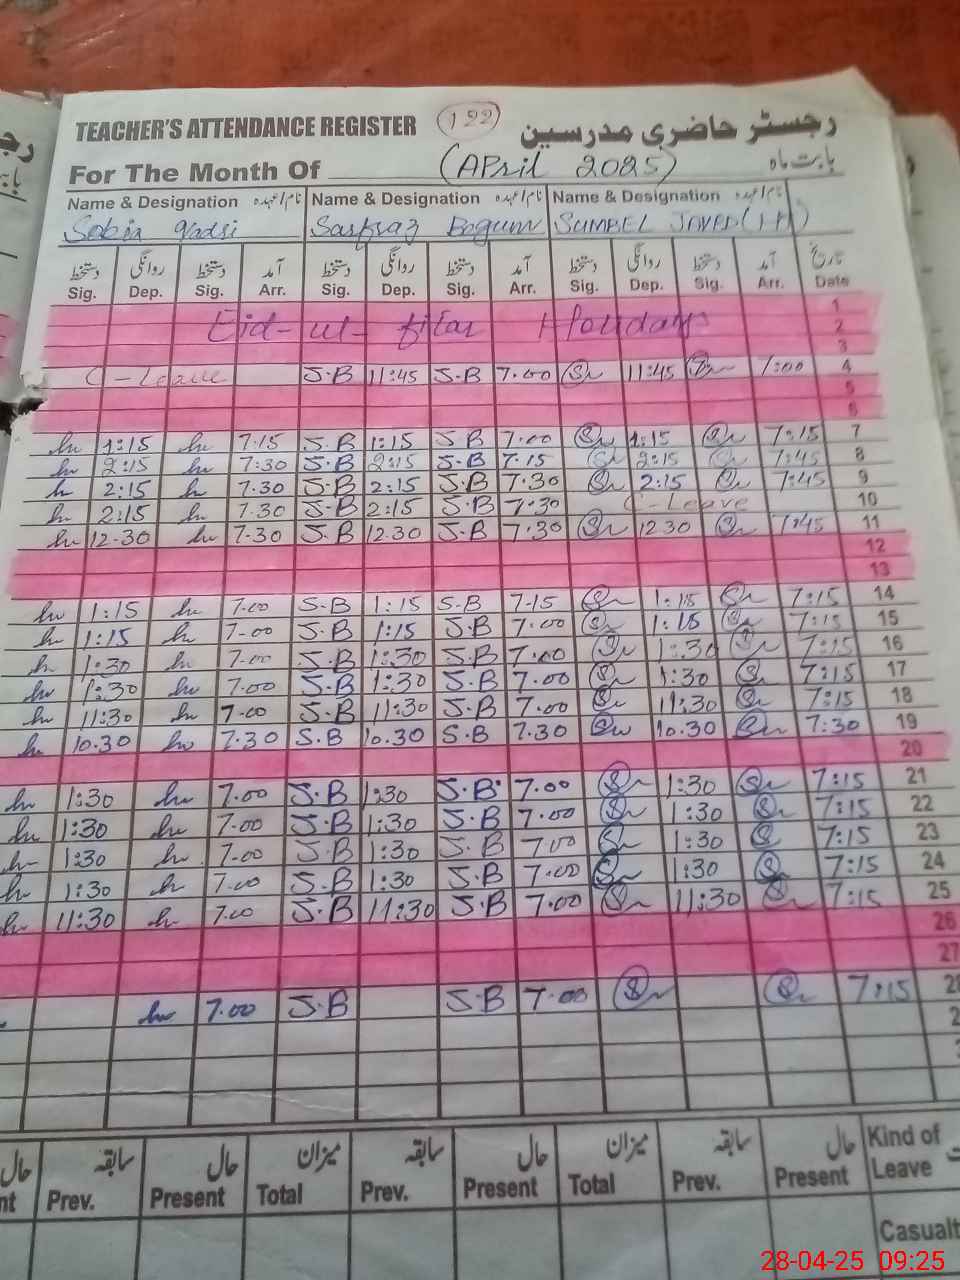 TEACHER'S ATTENDANCE REGISTER 122 رجسٹر حاضری مدرسین
For The Month Of (April 2025) بابت ماہ
Name & Designation نام/عہدہ Name & Designation نام/عہدہ Name & Designation نام/عہدہ
Sobia Qadri Sarfraz Begum SUMBEL JAVED
دستخط روانگی دستخط آمد دستخط روانگی دستخط آمد دستخط روانگی دستخط آمد تاریخ
Sig. Dep. Sig. Arr. Sig. Dep. Sig. Arr. Sig. Dep. Sig. Arr. Date
1
Eid-ul-fitar Holidays 2
3
C-Leave S.B 11:45 S.B 7.00 11:45 7:00 4
5
6
1:15 7.15 S.B 1:15 S.B 7.00 1:15 7:15 7
2:15 7:30 S.B 2:15 S.B 7.15 2:15 7:45 8
2:15 7.30 S.B 2:15 S.B 7.30 2:15 7:45 9
2:15 7.30 S.B 2:15 S.B 7.30 C-Leave 10
12.30 7.30 S.B 12.30 S.B 7.30 12.30 7:45 11
12
13
1:15 7.00 S.B 1:15 S.B 7.15 1:15 7:15 14
1:15 7.00 S.B 1:15 S.B 7.00 1:15 7:15 15
1:30 7.00 S.B 1:30 S.B 7.00 1:30 7:15 16
1:30 7.00 S.B 1:30 S.B 7.00 1:30 7:15 17
11:30 7.00 S.B 11:30 S.B 7.00 11:30 7:15 18
10.30 7.30 S.B 10.30 S.B 7.30 10.30 7:30 19
20
1:30 7.00 S.B 1:30 S.B 7.00 1:30 7:15 21
1:30 7.00 S.B 1:30 S.B 7.00 1:30 7:15 22
1:30 7.00 S.B 1:30 S.B 7.00 1:30 7:15 23
1:30 7.00 S.B 1:30 S.B 7.00 1:30 7:15 24
11:30 7.00 S.B 11:30 S.B 7.00 11:30 7:15 25
26
27
7.00 S.B S.B 7.00 7:15
حال سابقہ حال میزان سابقہ حال میزان سابقہ حال Kind of
Prev. Present Total Prev. Present Total Prev. Present Leave
28-04-25 09:25